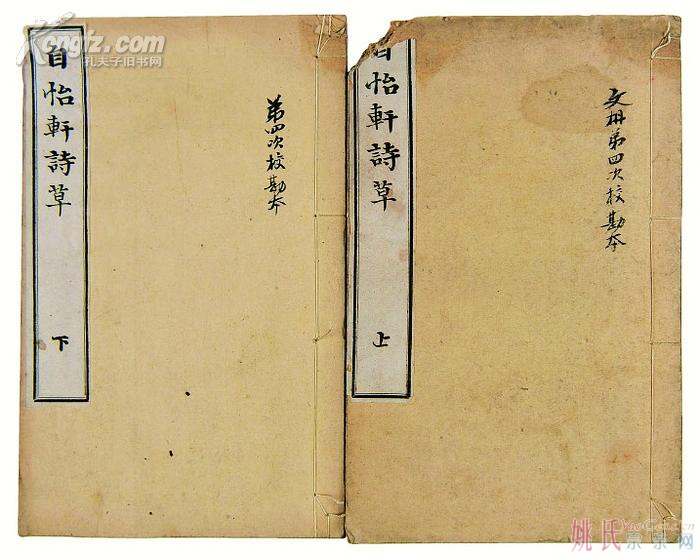 Kongfz.com
孔夫子旧书网
自怡軒詩草
下
第四次校勘本
自怡軒詩草
上
第四次校勘本
姚氏